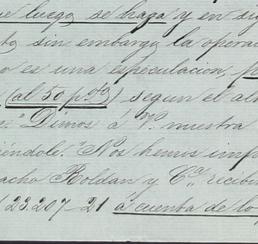 luego, se haga y en si
sin embargo la opera
o es una especulacion,
(al 50 p.%) segun el al
n." Dimos á V. nuestra
iéndole: "Nos hemos imp
acho Roldan y Cª. recibi
23.207-21 a cuenta de lo